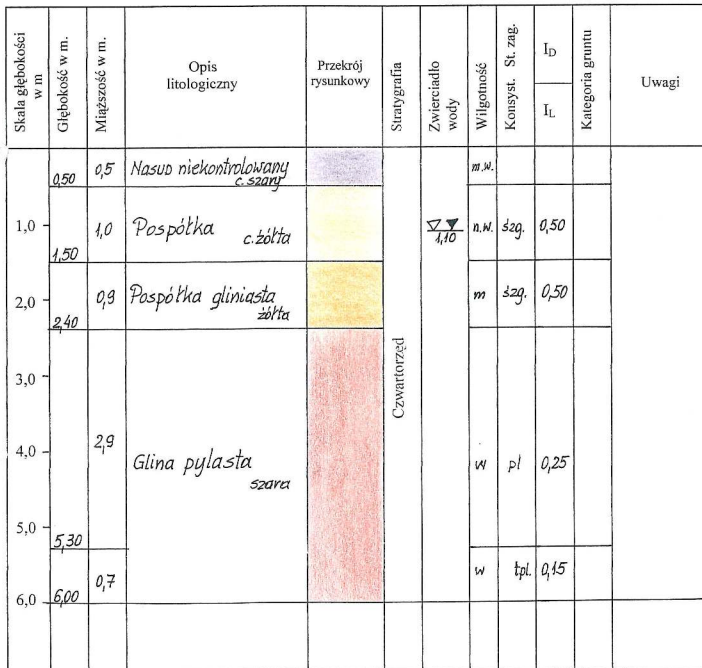 Skala głębokości
w m
Głębokość w m.
Miąższość w m.
Opis
litologiczny
Przekrój
rysunkowy
Stratygrafia
Zwierciadło
wody
Wilgotność
Konsyst. St. zag.
I_D
I_L
Kategoria gruntu
Uwagi
0,50
0,5
Nasyp niekontrolowany
c. szary
m.w.
1,0
1,50
1,0
Pospółka
c. żółta
1,10
n.w.
śzg.
0,50
2,0
2,40
0,9
Pospółka gliniasta
żółta
m
śzg.
0,50
3,0
4,0
5,0
5,30
2,9
Glina pylasta
szara
Czwartorzęd
w
pl
0,25
6,0
6,00
0,7
w
tpl.
0,15